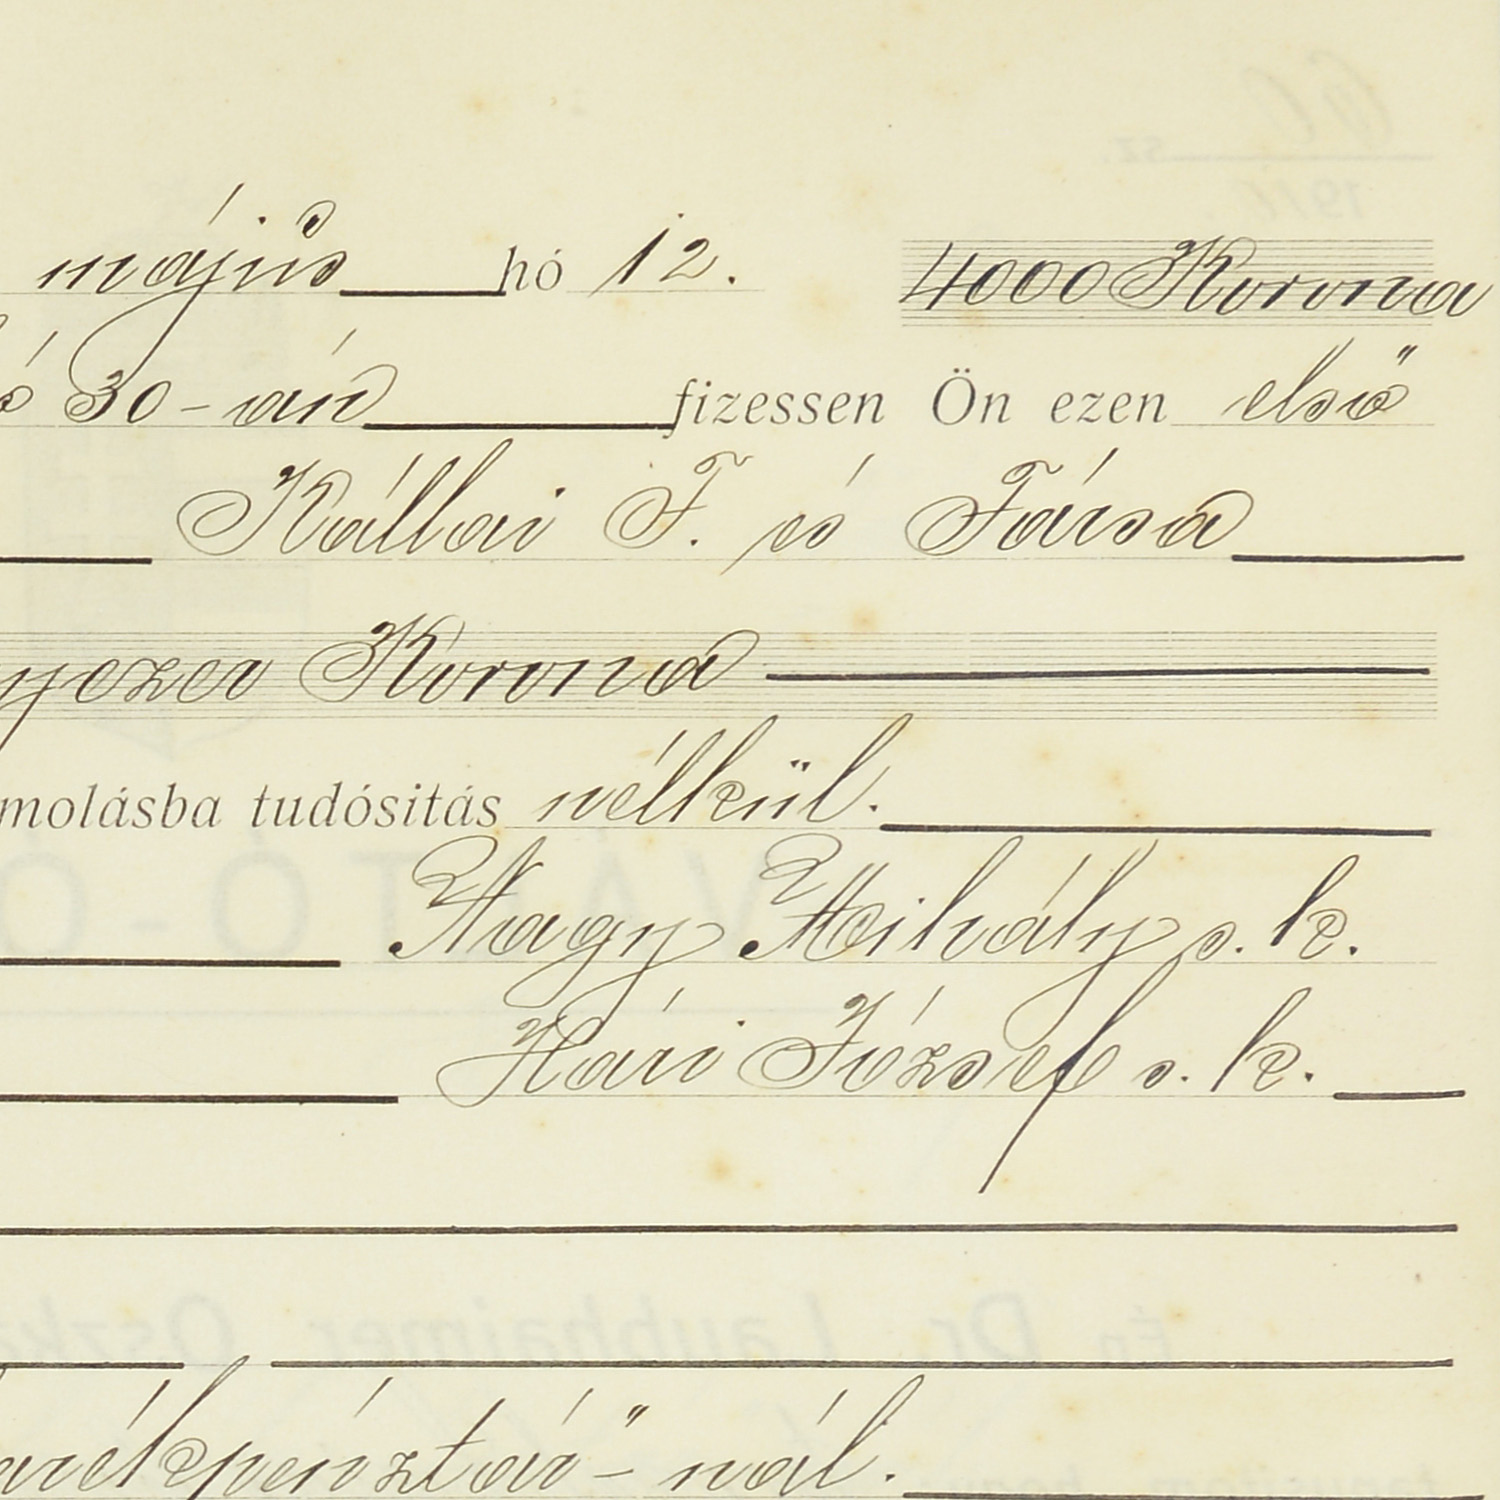 május hó 12. 4000 Korona
30-án fizessen Ön ezen első
Kállai F. és Társa
yezer Korona
molásba tudósitás nélkül.
Nagy Mihály s. k.
Hári József s. k.
arékpénztár"-nál.